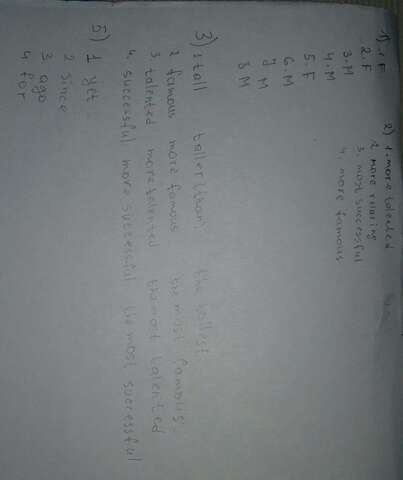 1) 1. F
2. F
3. M
4. M
5. F
6. M
7 M
8 M
2) 1. more talented
2. more relaxing
3. most successful
4. more famous
3) 1 tall taller (than) the tallest
2 famous more famous the most famous
3. talented more talented the most talented
4. successful more successful the most successful
5) 1 yet
2 since
3 ago
4 for